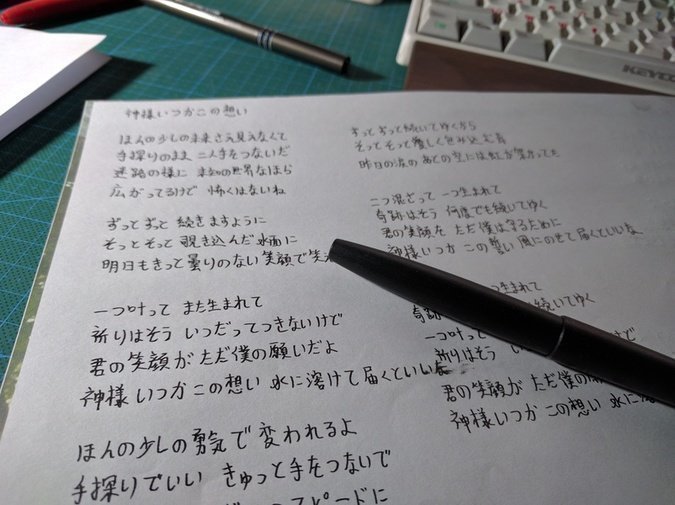 神様いつかこの想い
ほんの少しの未来さえ見えなくて
手探りのまま 二人手をつないだ
迷路の様に 未知の世界ならほら
広がってるけど 怖くはないね
ずっとずっと 続きますように
そっとそっと 覗き込んだ水面に
明日もきっと曇りのない笑顔で笑
一つ叶って また生まれて
祈りはそう いつだってつきないけど
君の笑顔が ただ僕の願いだよ
神様いつか この想い 水に溶けて届くといいな
ほんの少しの勇気で変われるよ
手探りでいい きゅっと手をつないで
スピードに
ずっとずっと続いてゆくから
そっとそっと優しく包み込む
昨日の涙の あとの空には虹が架かってた
二つ混ざって 一つ生まれて
奇跡はそう 何度でも続いてゆく
君の笑顔を ただ僕は守るために
神様いつか この誓い 風にのせて届くといいな
生まれて
奇跡 続いてゆく
一つ叶って
祈りはそう けど
君の笑顔が ただ僕の
神様いつか この想い 水に
KEYCO